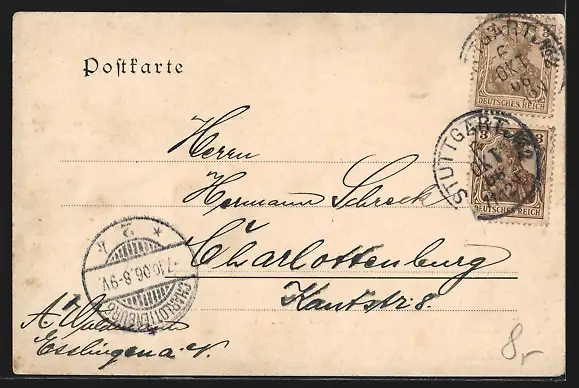 Postkarte
STUTTGART
6 OKT 06
DEUTSCHES REICH
3 3
STUTTGART No 2
OKT
DEUTSCHES REICH
Herrn
Hermann Schreck
Charlottenburg
Kantstr 8.
* 2 *
7.10.06.8-9V.
CHARLOTTENBURG
A.
Esslingen a. N.
8,-